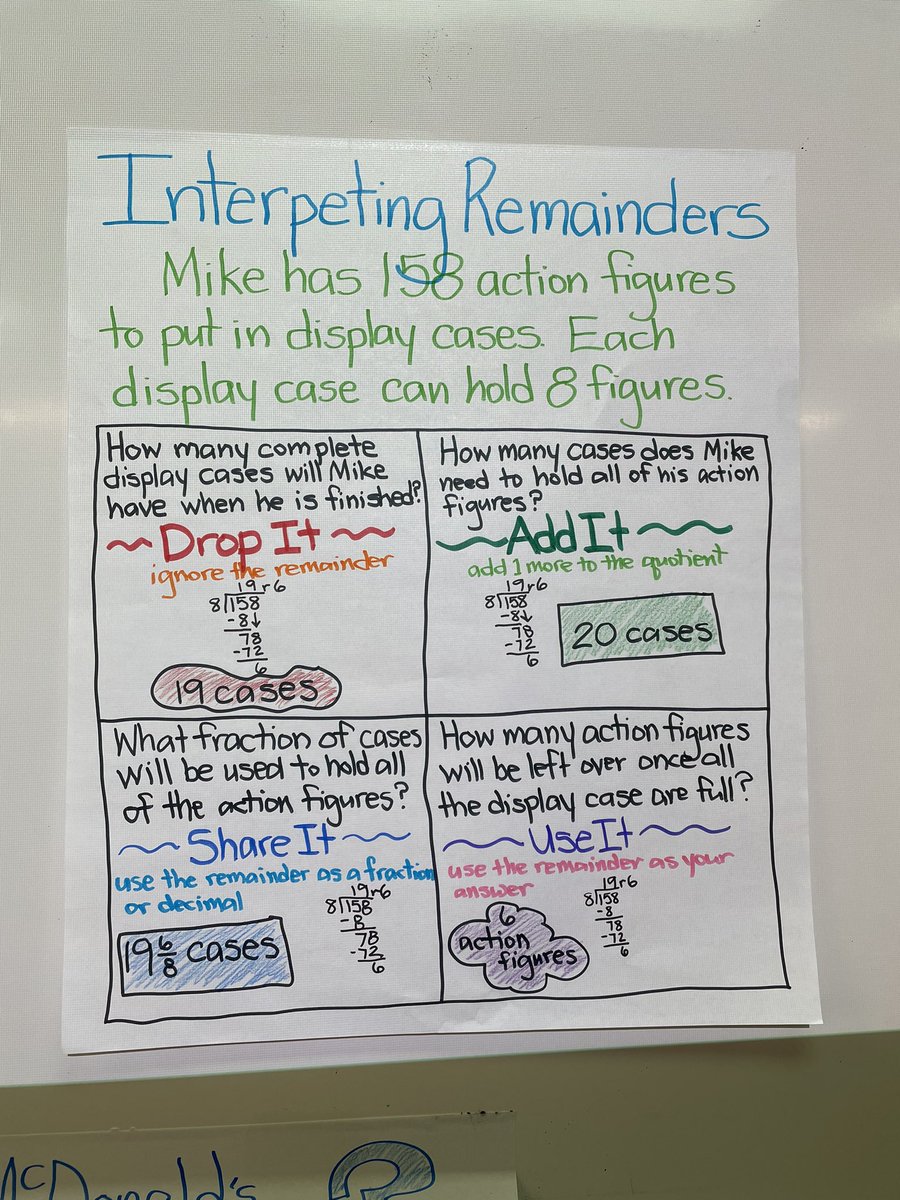 Interpeting Remainders
Mike has 158 action figures
to put in display cases. Each
display case can hold 8 figures.
How many complete
display cases will Mike
have when he is finished?
~Drop It~
ignore the remainder
19r6
8/158
-8↓
78
-72
6
19 cases
How many cases does Mike
need to hold all of his action
figures?
~Add It~
add 1 more to the quotient
19r6
8/158
-8↓
78
-72
6
20 cases
What fraction of cases
will be used to hold all
of the action figures?
~Share It~
use the remainder as a fraction
or decimal
19r6
8/158
-8
78
-72
6
19 6/8 cases
How many action figures
will be left over once all
the display case are full?
~Use It~
use the remainder as your
answer
19r6
8/158
-8
78
-72
6
6
action
figures
McDonald's ?